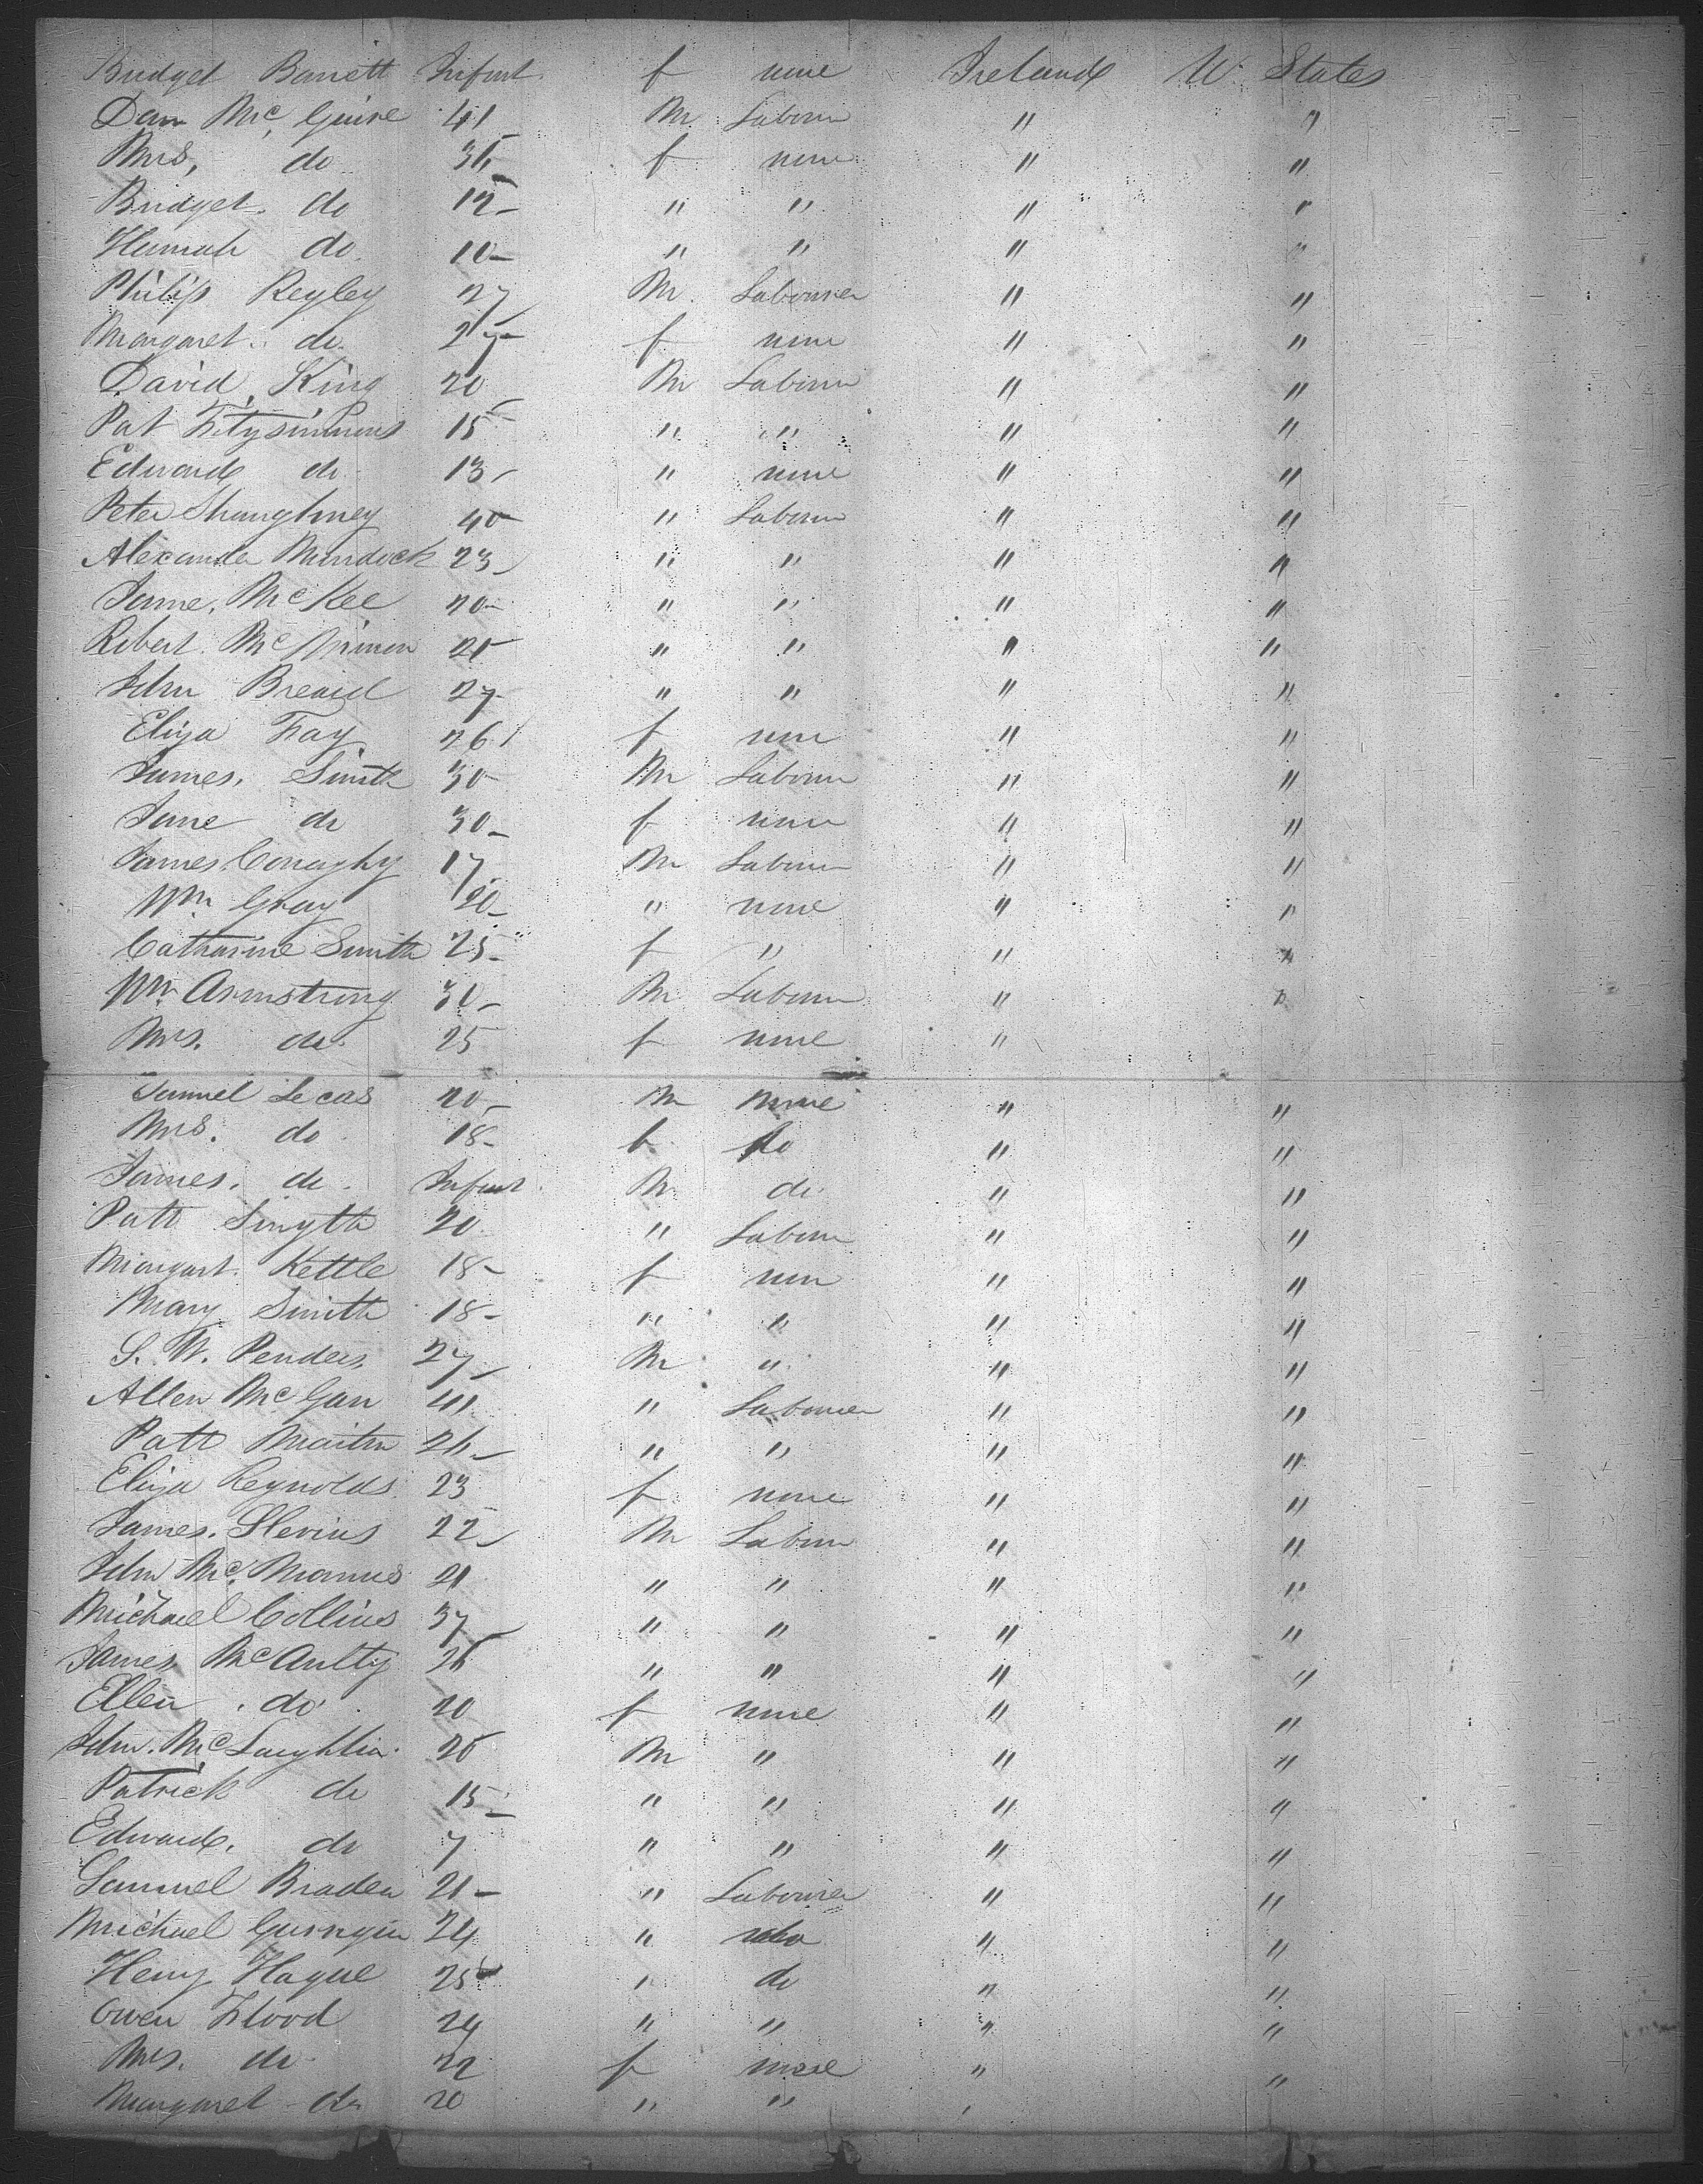 Bridget Barrett Infant f none Ireland U States
Dan McGuire 41 M Labourer " "
Mrs, do 35 f none " "
Bridget do 12 " " " "
Hannah do 10 " " " "
Philip Reyley 27 M Labourer " "
Margaret do 27 f none " "
David King 20 M Labourer " "
Pat Fitzsimmons 15 " " " "
Edward do 13 " none " "
Peter Shaughney 40 " Labourer " "
Alexander Murdock 23 " " " "
Jame, McKee 20 " " " "
Robert Mc 20 " " " "
John Breaid 27 " " " "
Eliza Fay 26 f none " "
James, Smith 30 M Labourer " "
Jane do 30 f none " "
James Conaghy 17 M Labourer " "
Wm Gray 20 " none " "
Catharine Smith 25 f " " "
Wm Armstrong 30 M Labourer " "
Mrs. do 25 f none "
Samuel Lecas 20 M none " "
Mrs. do 18 f do " "
James. do Infant M do " "
Patt Smyth 20 " Labourer " "
Margart. Kettle 18 f none " "
Mary Smith 18 " " " "
S. W. Penders 27 M " " "
Allen McGan 41 " Labourer " "
Patt Martin 26 " " " "
Eliza Reynolds 23 f none " "
James. Slevins 22 M Labourer " "
John McManus 21 " " " "
Michael Collins 37 " " " "
James McAnlty 26 " " " "
Ellen do 20 f none " "
John. McLaughlin 20 M " " "
Patrick do 15 " " " "
Edward. do 7 " " " "
Samuel Braden 21 " Labourer " "
Michael 24 " do " "
Henry Hague 25 " do " "
Owen Flood 24 " " " "
Mrs. do 22 f none " "
Margaret do 20 " " "